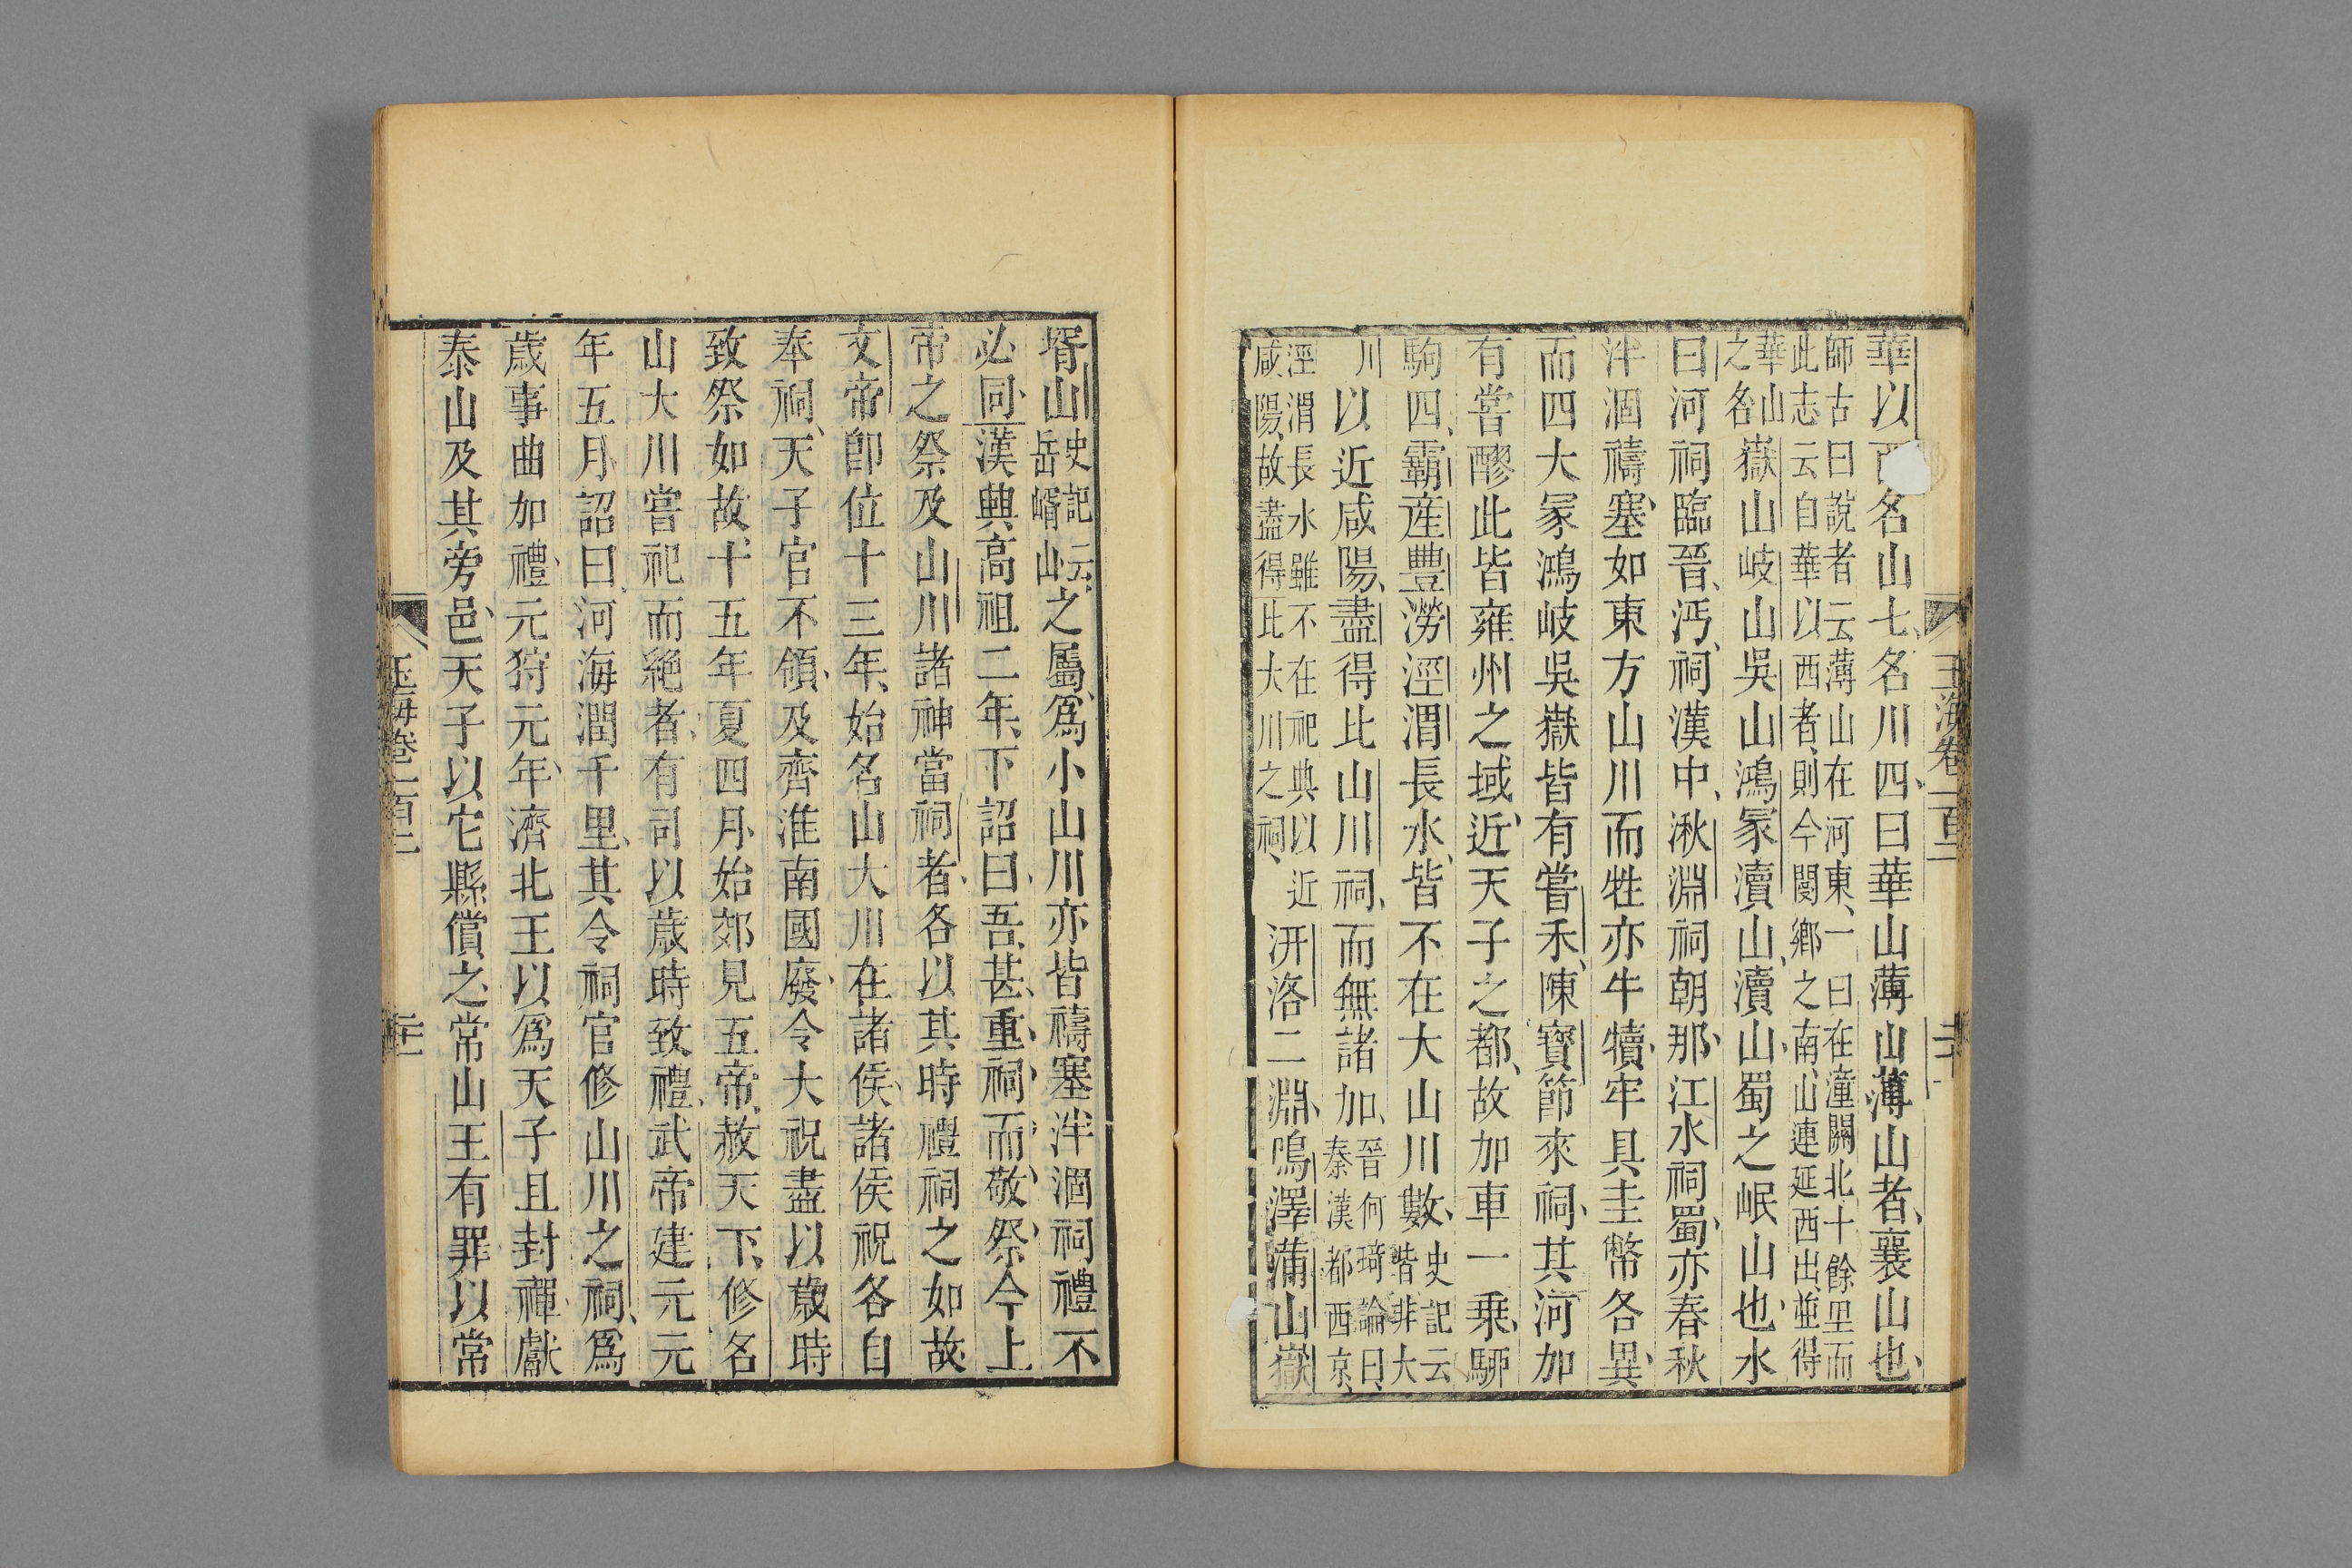 華以名山七名川四曰華山薄山薄山者襄山也
師古曰說者云薄山在河東一曰在潼關北十餘里而
此志云自華以西者則今閿鄉之南山連延西出並得
華山
之名嶽山岐山吳山鴻冢瀆山瀆山蜀之岷山也水
曰河祠臨晉沔祠漢中湫淵祠朝那江水祠蜀亦春秋
泮涸禱塞如東方山川而牲亦牛犢牢具圭幣各異
而四大冢鴻岐吳嶽皆有嘗禾陳寶節來祠其河加
有嘗醪此皆雍州之域近天子之都故加車一乗駵
駒四霸產豐澇涇渭長水皆不在大山川數史記云
皆非大
川以近咸陽盡得比山川祠而無諸加晉何琦論曰
秦漢都西京
涇渭長水雖不在祀典以近
咸陽故盡得此大川之祠汧洛二淵鳴澤蒲山嶽
壻山史記云
岳㟧山之屬爲小山川亦皆禱塞泮涸祠禮不
必同漢興高祖二年下詔曰吾甚重祠而敬祭今上
帝之祭及山川諸神當祠者各以其時禮祠之如故
文帝卽位十三年始名山大川在諸侯諸侯祝各自
奉祠天子官不領及齊淮南國廢令大祝盡以歲時
致祭如故十五年夏四月始郊見五帝赦天下修名
山大川嘗祀而絕者有司以歲時致禮武帝建元元
年五月詔曰河海潤千里其令祠官修山川之祠爲
歲事曲加禮元狩元年濟北王以爲天子且封禪獻
泰山及其旁邑天子以它縣償之常山王有罪以常
玉海卷一百二
玉海卷一百二